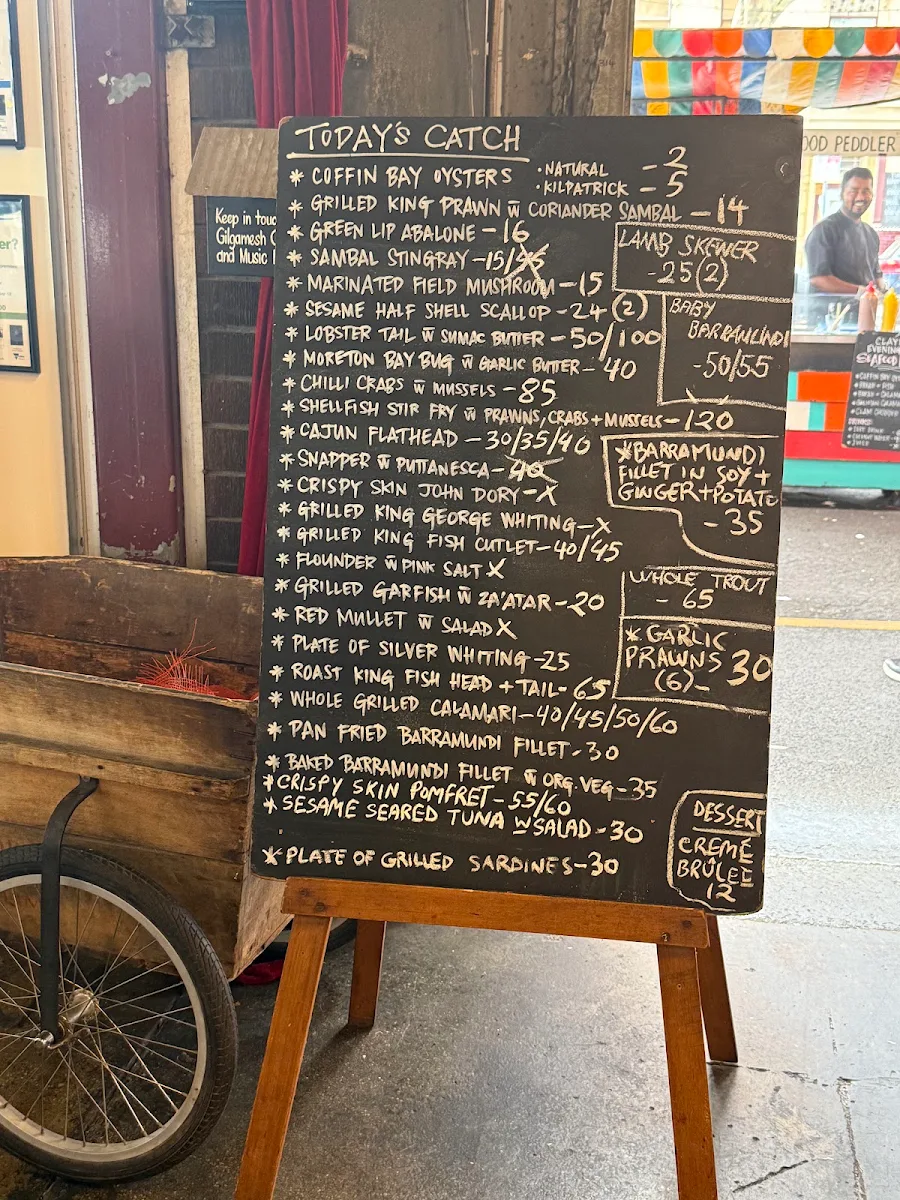 TODAY'S CATCH
* COFFIN BAY OYSTERS · NATURAL - 2
· KILPATRICK - 5
* GRILLED KING PRAWN w̄ CORIANDER SAMBAL - 14
* GREEN LIP ABALONE - 16
* SAMBAL STINGRAY - 15/
* MARINATED FIELD MUSHROOM - 15
* SESAME HALF SHELL SCALLOP - 24 (2)
* LOBSTER TAIL w̄ SUMAC BUTTER - 50/100
* MORETON BAY BUG w̄ GARLIC BUTTER - 40
* CHILLI CRABS w̄ MUSSELS - 85
* SHELLFISH STIR FRY w̄ PRAWNS, CRABS + MUSSELS - 120
* CAJUN FLATHEAD - 30/35/40
* SNAPPER w̄ PUTTANESCA - 40
* CRISPY SKIN JOHN DORY - X
* GRILLED KING GEORGE WHITING - X
* GRILLED KING FISH CUTLET - 40/45
* FLOUNDER w̄ PINK SALT X
* GRILLED GARFISH w̄ ZA'ATAR - 20
* RED MULLET w̄ SALAD X
* PLATE OF SILVER WHITING - 25
* ROAST KING FISH HEAD + TAIL - 65
* WHOLE GRILLED CALAMARI - 40/45/50/60
* PAN FRIED BARRAMUNDI FILLET - 30
* BAKED BARRAMUNDI FILLET w̄ ORG. VEG - 35
* CRISPY SKIN POMFRET - 55/60
* SESAME SEARED TUNA w SALAD - 30
* PLATE OF GRILLED SARDINES - 30
LAMB SKEWER
- 25 (2)
BABY
BARRAMUNDI
- 50/55
* BARRAMUNDI
FILLET IN SOY +
GINGER + POTATO
- 35
WHOLE TROUT
- 65
* GARLIC
PRAWNS 30
(6) -
DESSERT
CREME
BRÛLEE
12
Keep in touc
Gilgamesh
and Music
er?
OOD PEDDLER